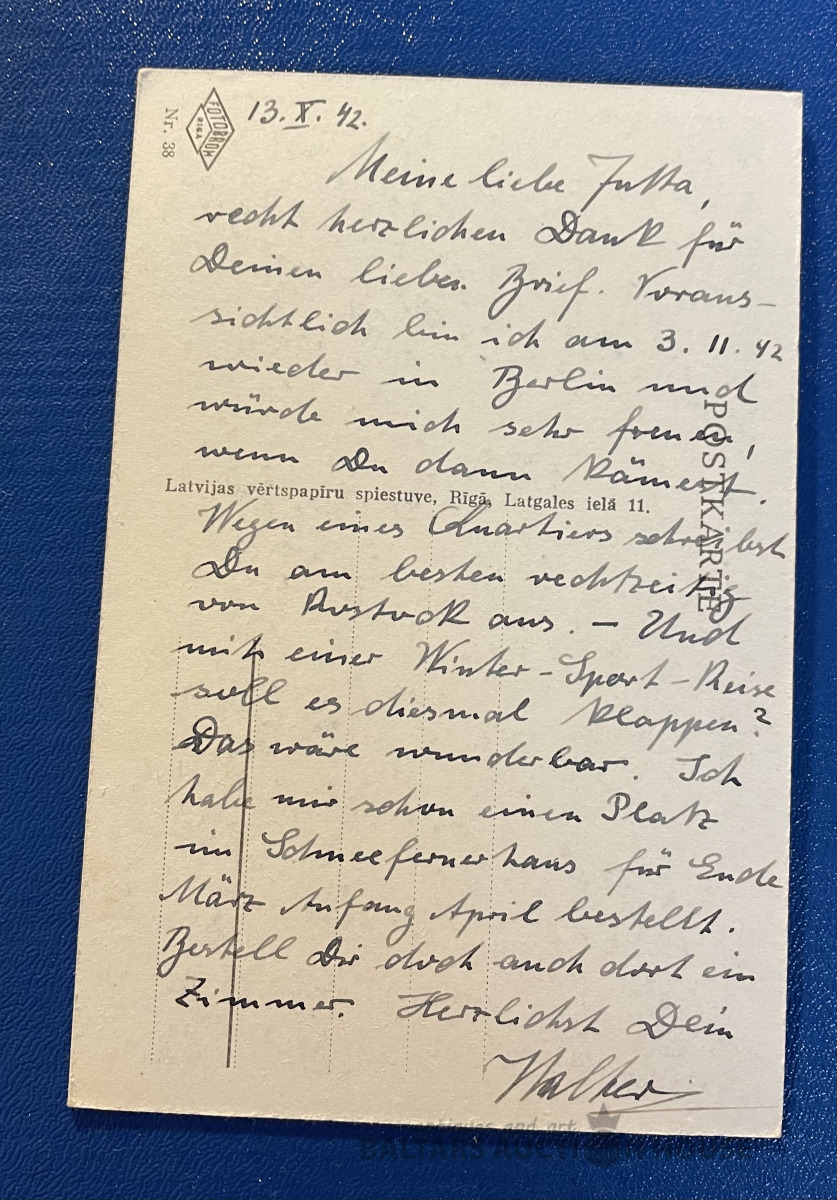 Nr. 38
FOTOBROM
RIGA
13. X. 42.
Meine liebe Jutta,
recht herzlichen Dank für
Deinen lieben Brief. Voraus-
sichtlich bin ich am 3. 11. 42
wieder in Berlin und
würde mich sehr freuen,
wenn Du dann kämest.
POSTKARTE
Latvijas vērtspapīru spiestuve, Rīgā, Latgales ielā 11.
Wegen eines Quartiers schreibst
Du am besten rechtzeitig
von Rostock aus. – Und
mit einer Winter-Sport-Reise
soll es diesmal klappen?
Das wäre wunderbar. Ich
habe mir schon einen Platz
im Schneefernerhaus für Ende
März Anfang April bestellt.
Bestell Dir doch auch dort ein
Zimmer. Herzlichst Dein
Walter
antiques and art
BALTARS AUCTION HOUSE